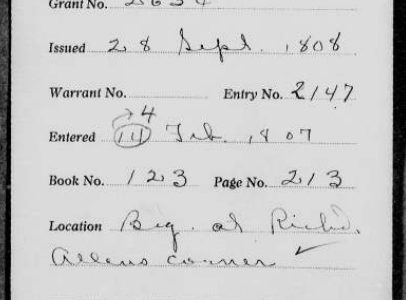 Grant No. 2634
Issued 28 Sept. 1808
Warrant No. Entry No. 2147
4
Entered 14 Feb. 1807
Book No. 123 Page No. 213
Location Beg. at Richd.
Allens corner ✓